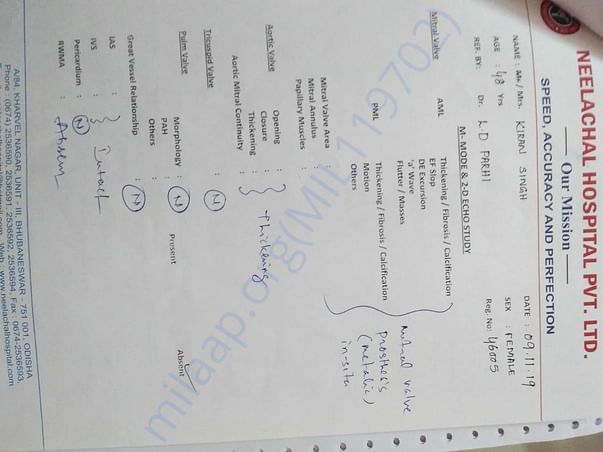 NEELACHAL HOSPITAL PVT. LTD.
Our Mission
SPEED, ACCURACY AND PERFECTION
NAME : Mr/ Mrs. KIRAN SINGH
DATE : 09.11.19
AGE : 48 Yrs
SEX : FEMALE
REF. BY: Dr. L.D PARHI
Reg. No: 46005
M- MODE & 2-D ECHO STUDY
Mitral Valve
AML
Thickening / Fibrosis / Calcification
EF Slop
DE Excursion
'a' Wave
Flutter / Masses
PML
Thickening / Fibrosis / Calcification
Motion
Others
Mitral valve
Prosthesis
(metalic)
in-situ
Mitral Valve Area :
Mitral Annulus :
Papillary Muscles :
Aortic Valve
Opening :
Closure :
Thickening :
Thickening
Aortic Mitral Continuity :
Tricuspid Valve : N
Pulm Valve
Morphology : N
PAH : Present Absent
Others :
Great Vessel Relationship : N
IAS :
IVS :
Intact
Pericardium : N
RWMA : Absent
A/84, KHARVEL NAGAR, UNIT - III, BHUBANESWAR - 751 001, ODISHA
Phone : (0674) 2536590, 2536591, 2536592, 2536594, Fax : 0674-2536593,
Web : www.neelachalhospital.com
milaap.org(MIL1119702)